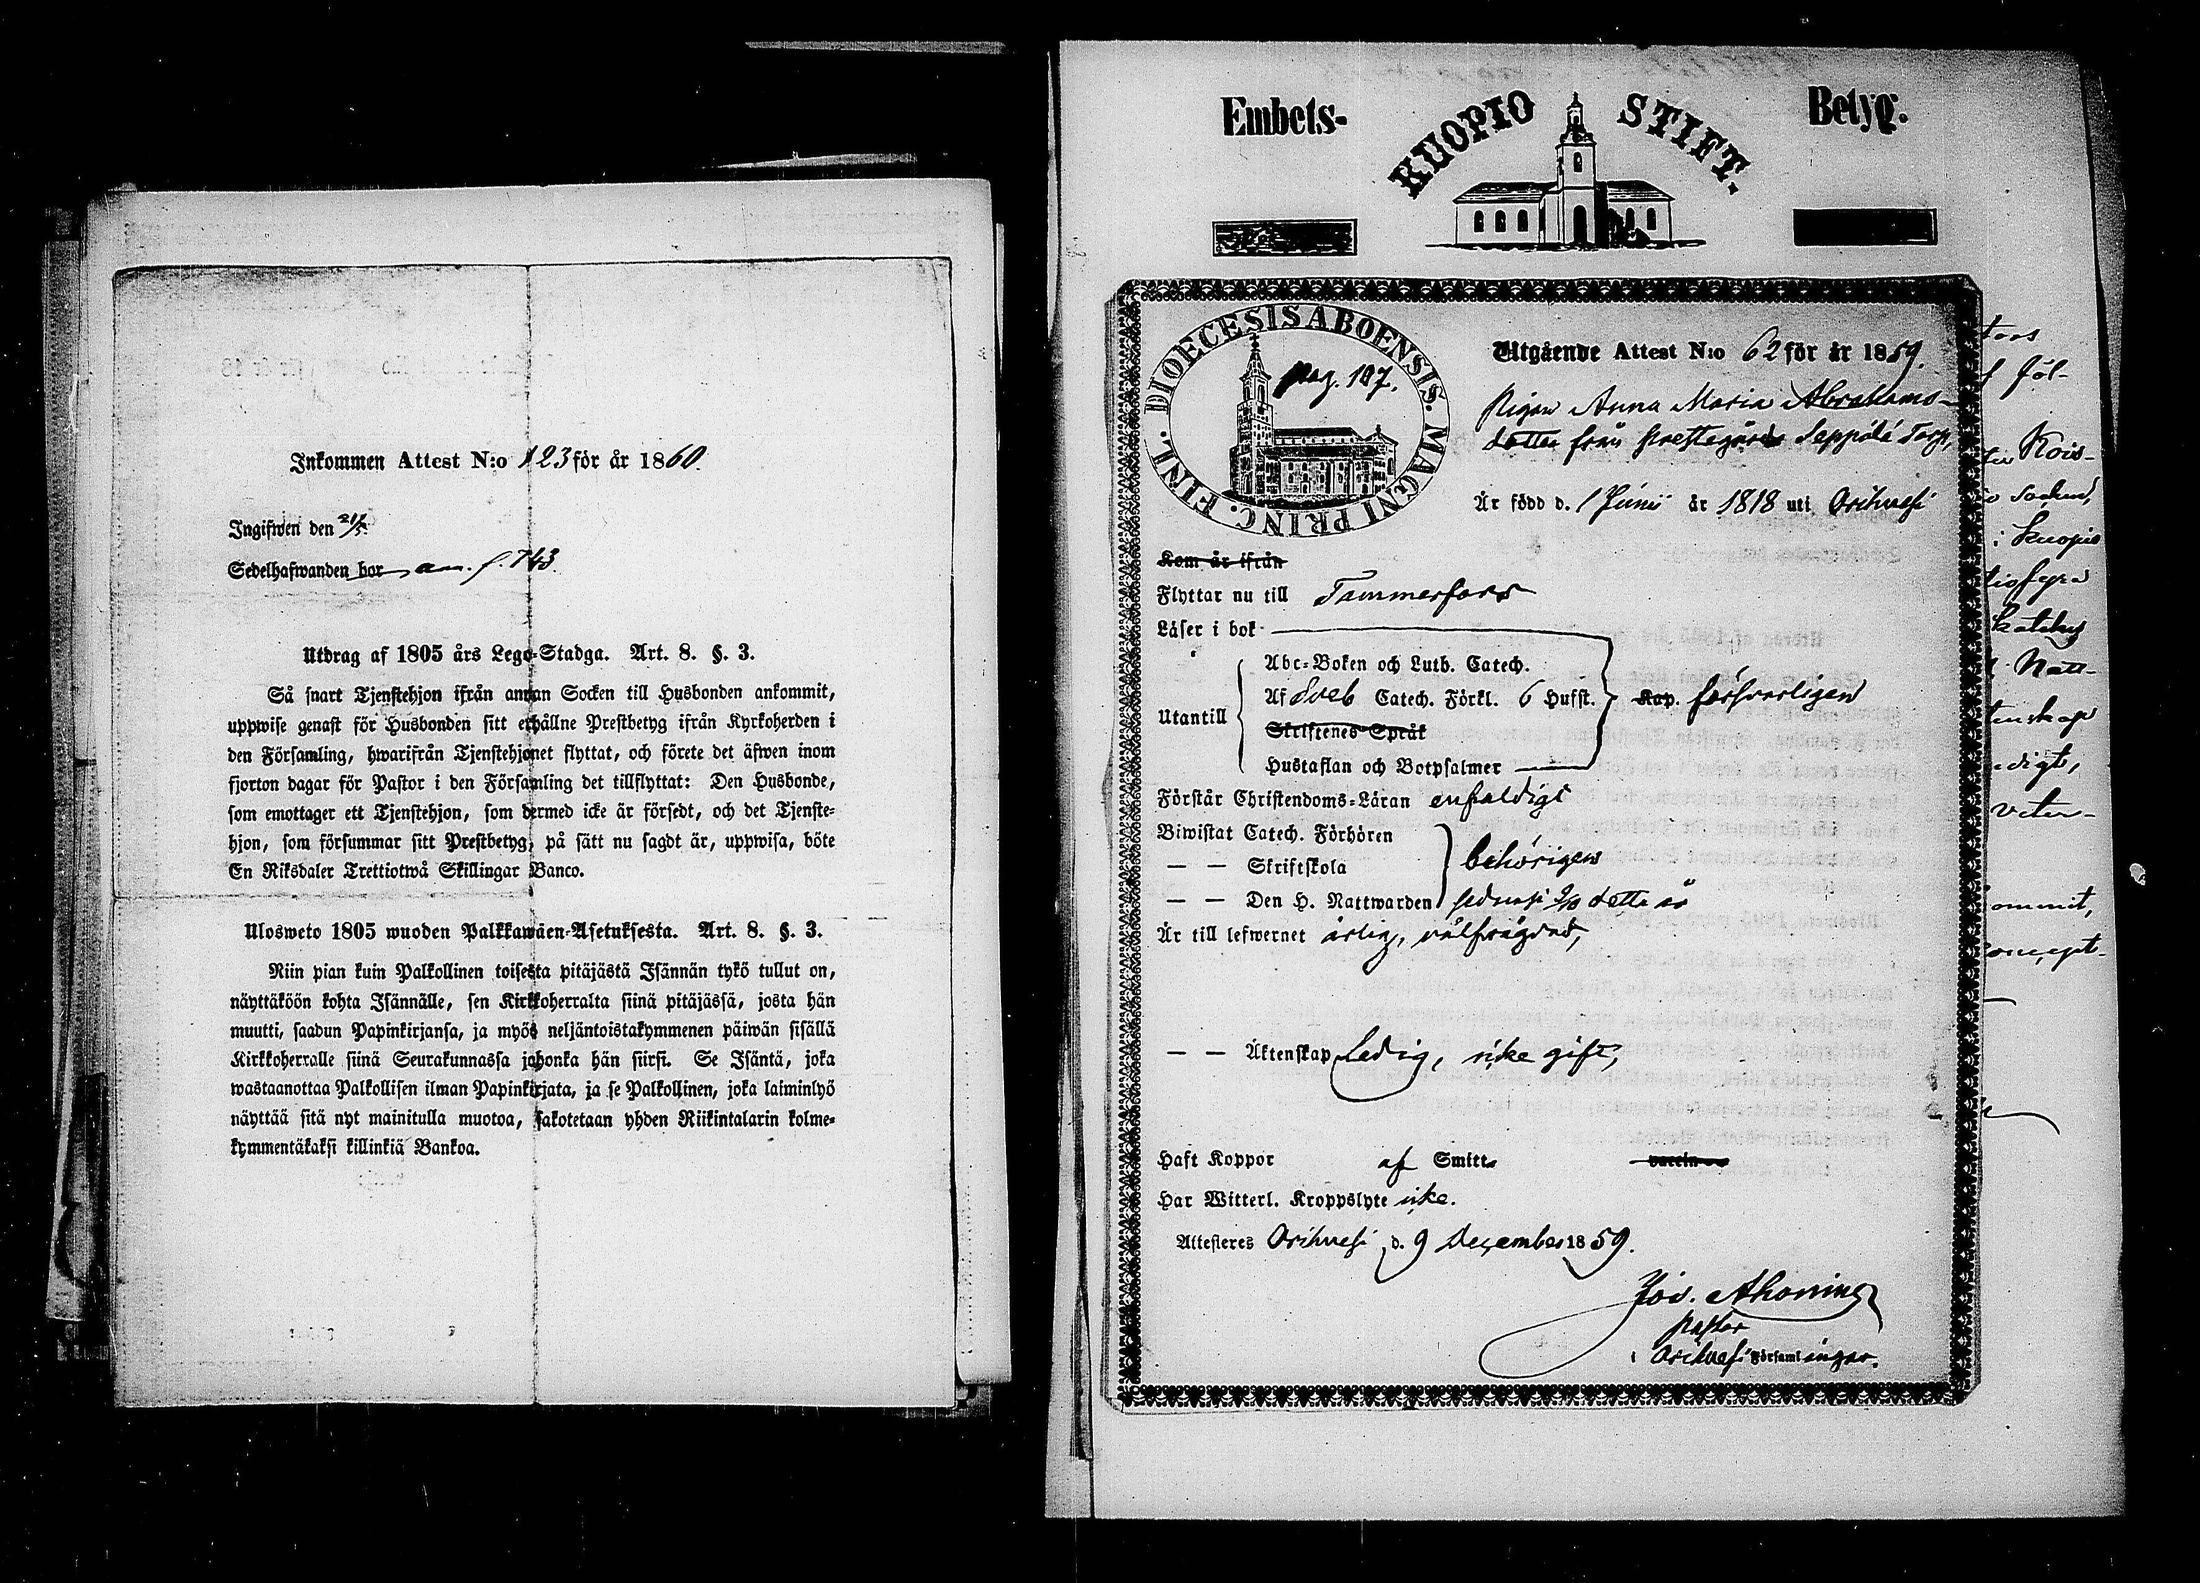 Inkommen Attest N:o 123 för år 1860.
Ingifwen den 21/5.
Sedelhafwanden bor an. f. 743.
Utdrag af 1805 års Lego-Stadga. Art. 8. §. 3.
Så snart Tjenstehjon ifrån annan Socken till Husbonden ankommit,
uppwise genast för Husbonden sitt erhållne Prestbetyg ifrån Kyrkoherden i
den Församling, hwarifrån Tjenstehjonet flyttat, och förete det äfwen inom
fjorton dagar för Pastor i den Församling det tillflyttat: Den Husbonde,
som emottager ett Tjenstehjon, som dermed icke är försedt, och det Tjenste-
hjon, som försummar sitt Prestbetyg, på sätt nu sagdt är, uppwisa, böte
En Riksdaler Trettiotwå Skillingar Banco.
Ulosweto 1805 wuoden Palkkawäen-Asetuksesta. Art. 8. §. 3.
Niin pian kuin Palkollinen toisesta pitäjästä Isännän tykö tullut on,
näyttäköön kohta Isännälle, sen Kirkkoherralta siinä pitäjässä, josta hän
muutti, saadun Papinkirjansa, ja myös neljäntoistakymmenen päiwän sisällä
Kirkkoherralle siinä Seurakunnassa jahonka hän siirsi. Se Isäntä, joka
wastaanottaa Palkollisen ilman Papinkirjata, ja se Palkollinen, joka laiminlyö
näyttää sitä nyt mainitulla muotoa, sakotetaan yhden Riikintalarin kolme-
kymmentäkaksi killinkiä Bankoa.
Embets- KUOPIO STIFT. Betyg.
DIOECESIS ABOENSIS. MAGNI PRINC. FINL.
pag. 107.
Utgående Attest N:o 62 för år 1859.
Pigan Anna Maria Abrahams-
dotter från Prestegårds Seppälä Torp,
Är född d. 1 Junii år 1818 uti Orihvesi
Kom år ifrån
Flyttar nu till Tammerfors
Läser i bok
Abc-Boken och Luth. Catech.
Utantill Af Sveb Catech. Förkl. 6 Hufst. Kap. försvarligen
Skriftenes Språk
Hustaflan och Botpsalmer
Förstår Christendoms-Läran enfaldigt
Biwistat Catech. Förhören
— — Skriftskola behörigen
— — Den H. Nattwarden sednast 2/10 detta år
Är till lefwernet ärlig, välfrägdad,
— — Äktenskap Ledig, icke gift,
Haft Koppor af Smitt
Har Witterl. Kroppslyte icke.
Attesteres Orihvesi d. 9 December 1859.
Pastor
i Orihvesi Församlingar.
tors
Jöl-
Kois-
socken,
i Kuopio
tiofyra
Katekes
Natt-
tenskap
digt,
veter-
ommit,